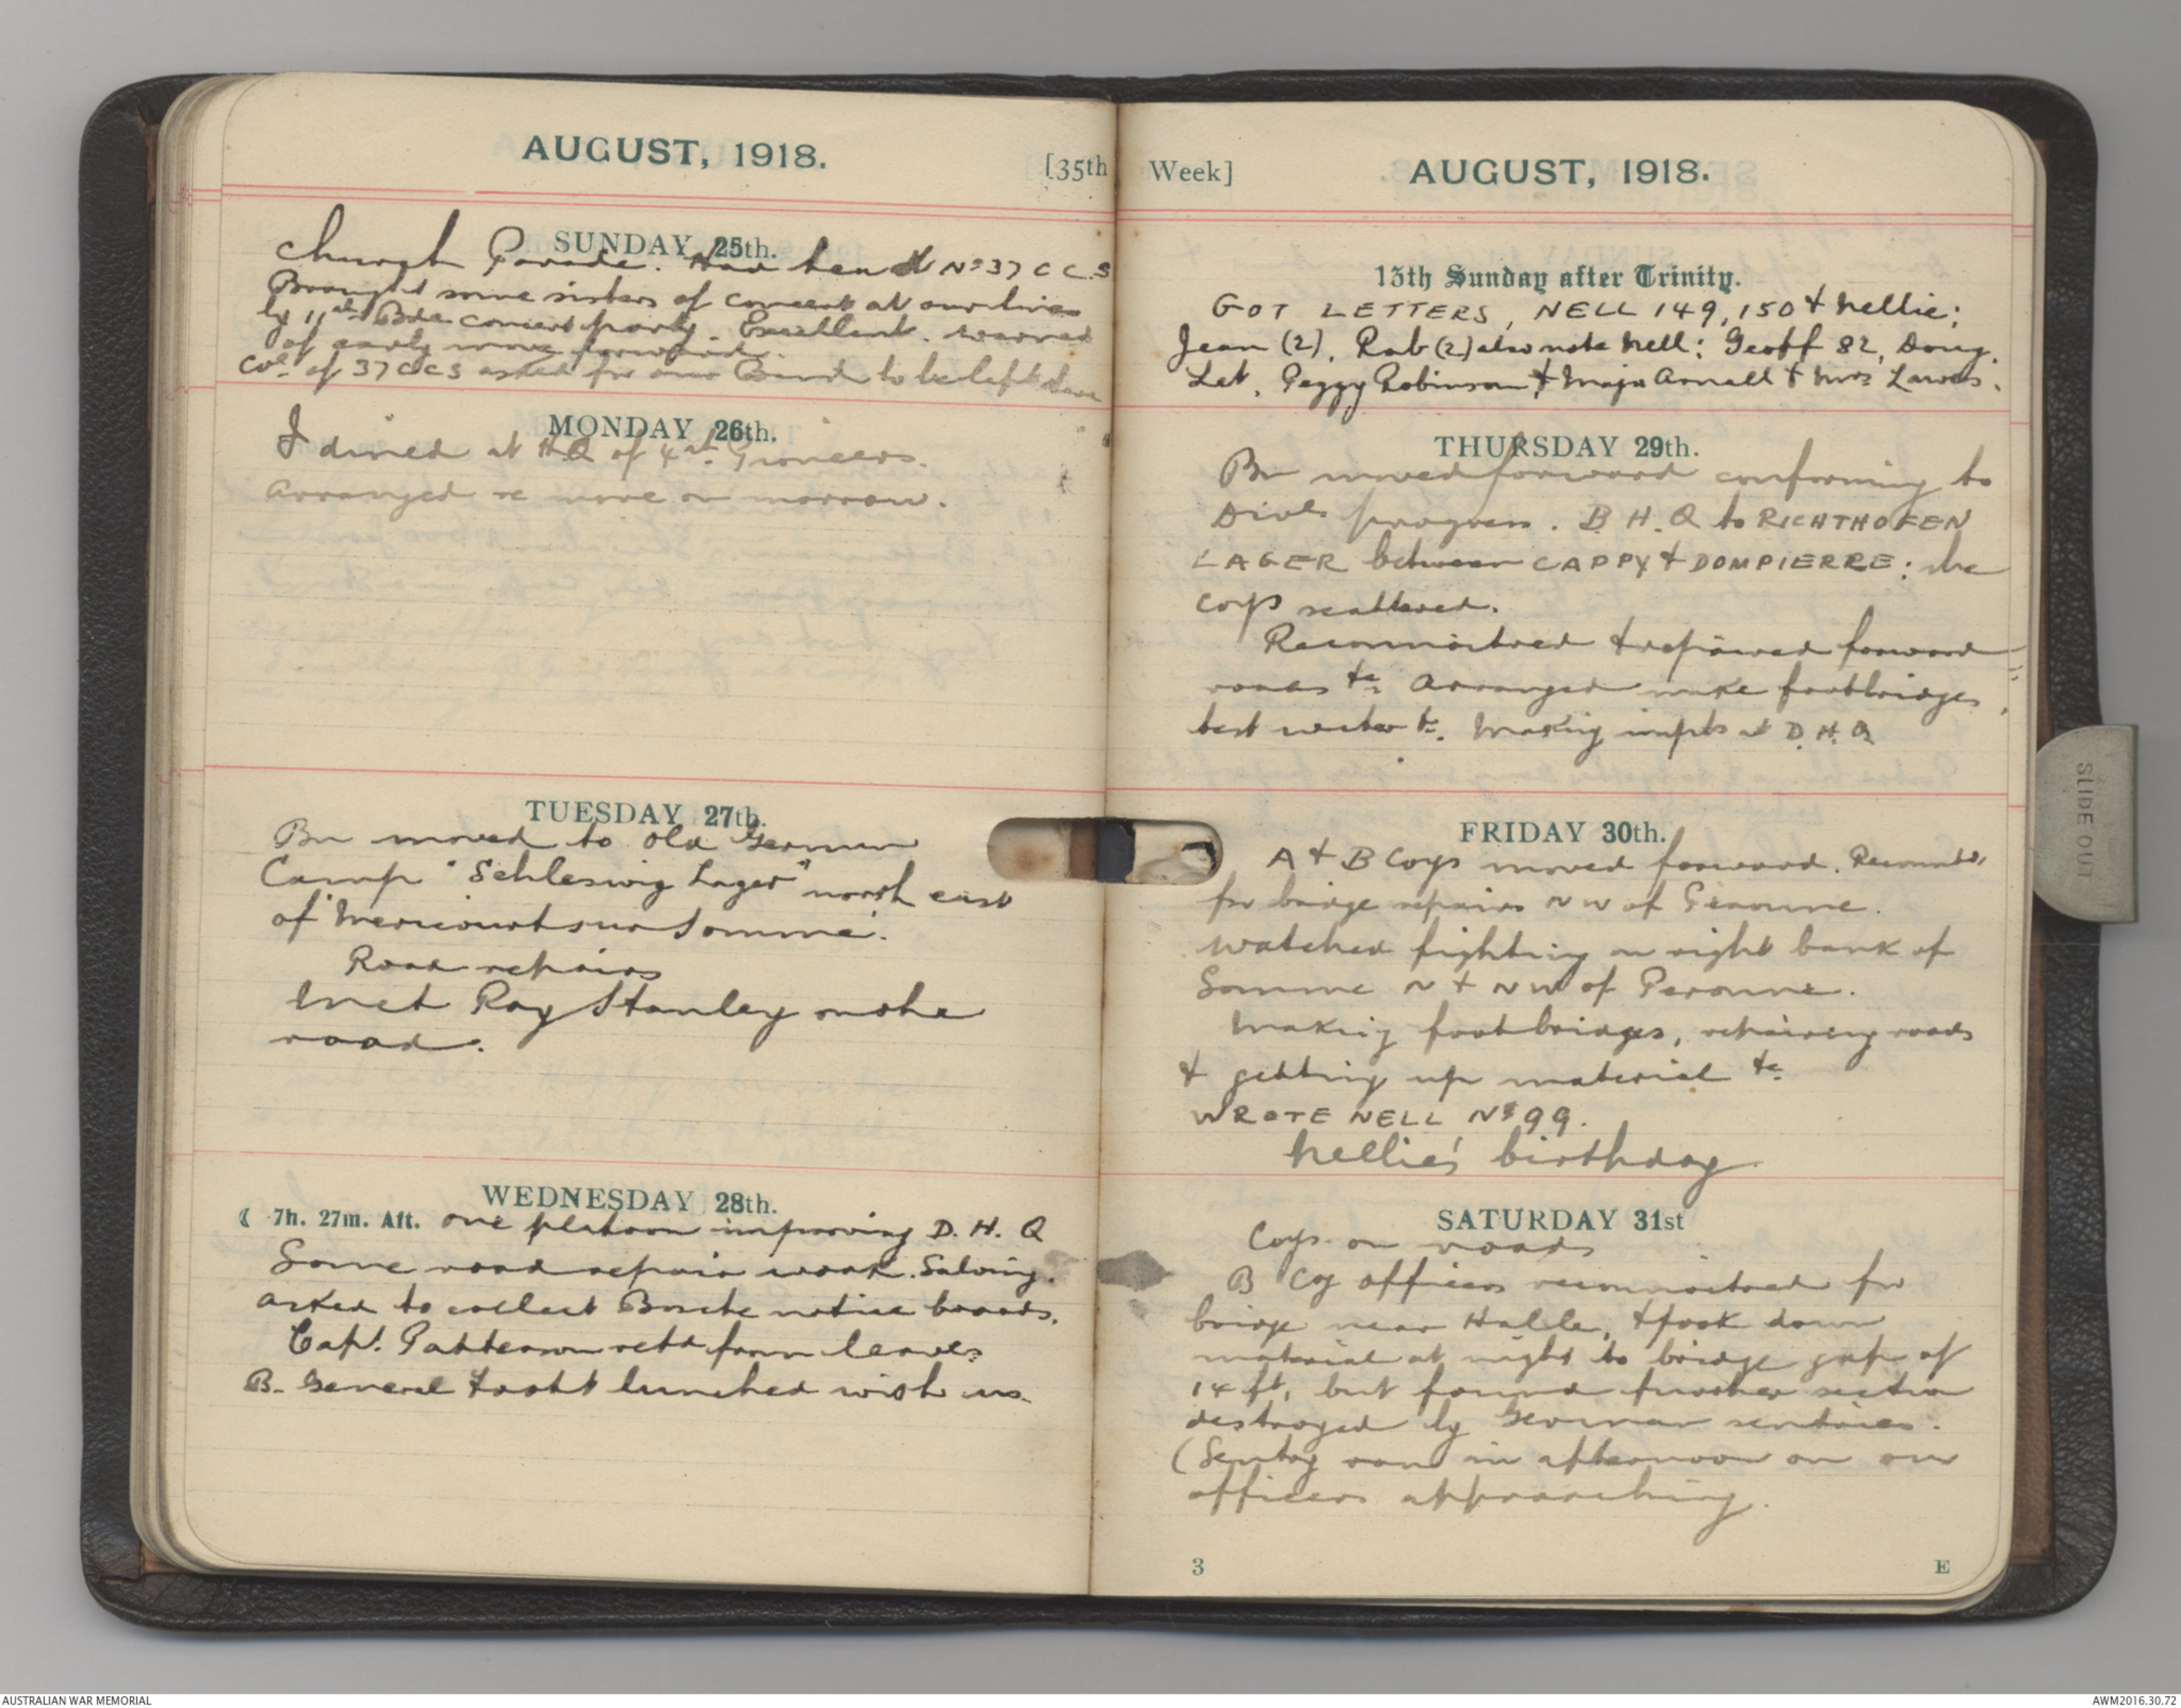 AUGUST, 1918.
[35th
SUNDAY 25th.
Church Parade. Had tea at No 37 C C.S
Brought some sisters of concert at our lines
by 11th Bde concert party. Excellent. Warned
of early move forward.
Col. of 37 CCS asked for our Band to be left
MONDAY 26th.
I dined at HQ of 4th Pioneers.
Arranged re move on morrow.
TUESDAY 27th.
Bn moved to old German
Camp "Schleswig Lager" north east
of Mericourt sur Somme.
Road repairs
Met Ray Stanley on the
road.
WEDNESDAY 28th.
☾ 7h. 27m. Aft. One platoon improving D. H. Q
Some road repair work. Salving.
Asked to collect Bosche notice boards.
Capt. Patterson retd from leave
B. General Foott lunched with us.
Week]
AUGUST, 1918.
13th Sunday after Trinity.
GOT LETTERS, NELL 149, 150 & Nellie;
Jean (2), Rab (2) also note Nell: Geoff 82, Doug.
Let, Peggy Robinson & Major Arnall & Mrs
THURSDAY 29th.
Bn moved forward conforming to
Divl. program. B H. Q to RICHTHOFEN
LAGER between CAPPY & DOMPIERRE: the
coys scattered.
Reconnoitred & repaired forward
roads &c. Arranged make footbridges,
test water &c. Making impts at D. H. Q
FRIDAY 30th.
A & B Coys moved forward. Reconntd.
for bridge repairs N W of Peronne.
Watched fighting on right bank of
Somme N & N W of Peronne.
Making footbridges, repairing roads
& getting up material &c.
WROTE NELL No 99.
Nellie's birthday
SATURDAY 31st
Coys on roads
B Coy officers reconnoitred for
bridge near Halle, & took down
material at night to bridge gap of
14 ft, but found further section
destroyed by German sentries.
(Sentry ran in afternoon on our
officers approaching.
3
E
SLIDE OUT
AUSTRALIAN WAR MEMORIAL
AWM2016.30.72